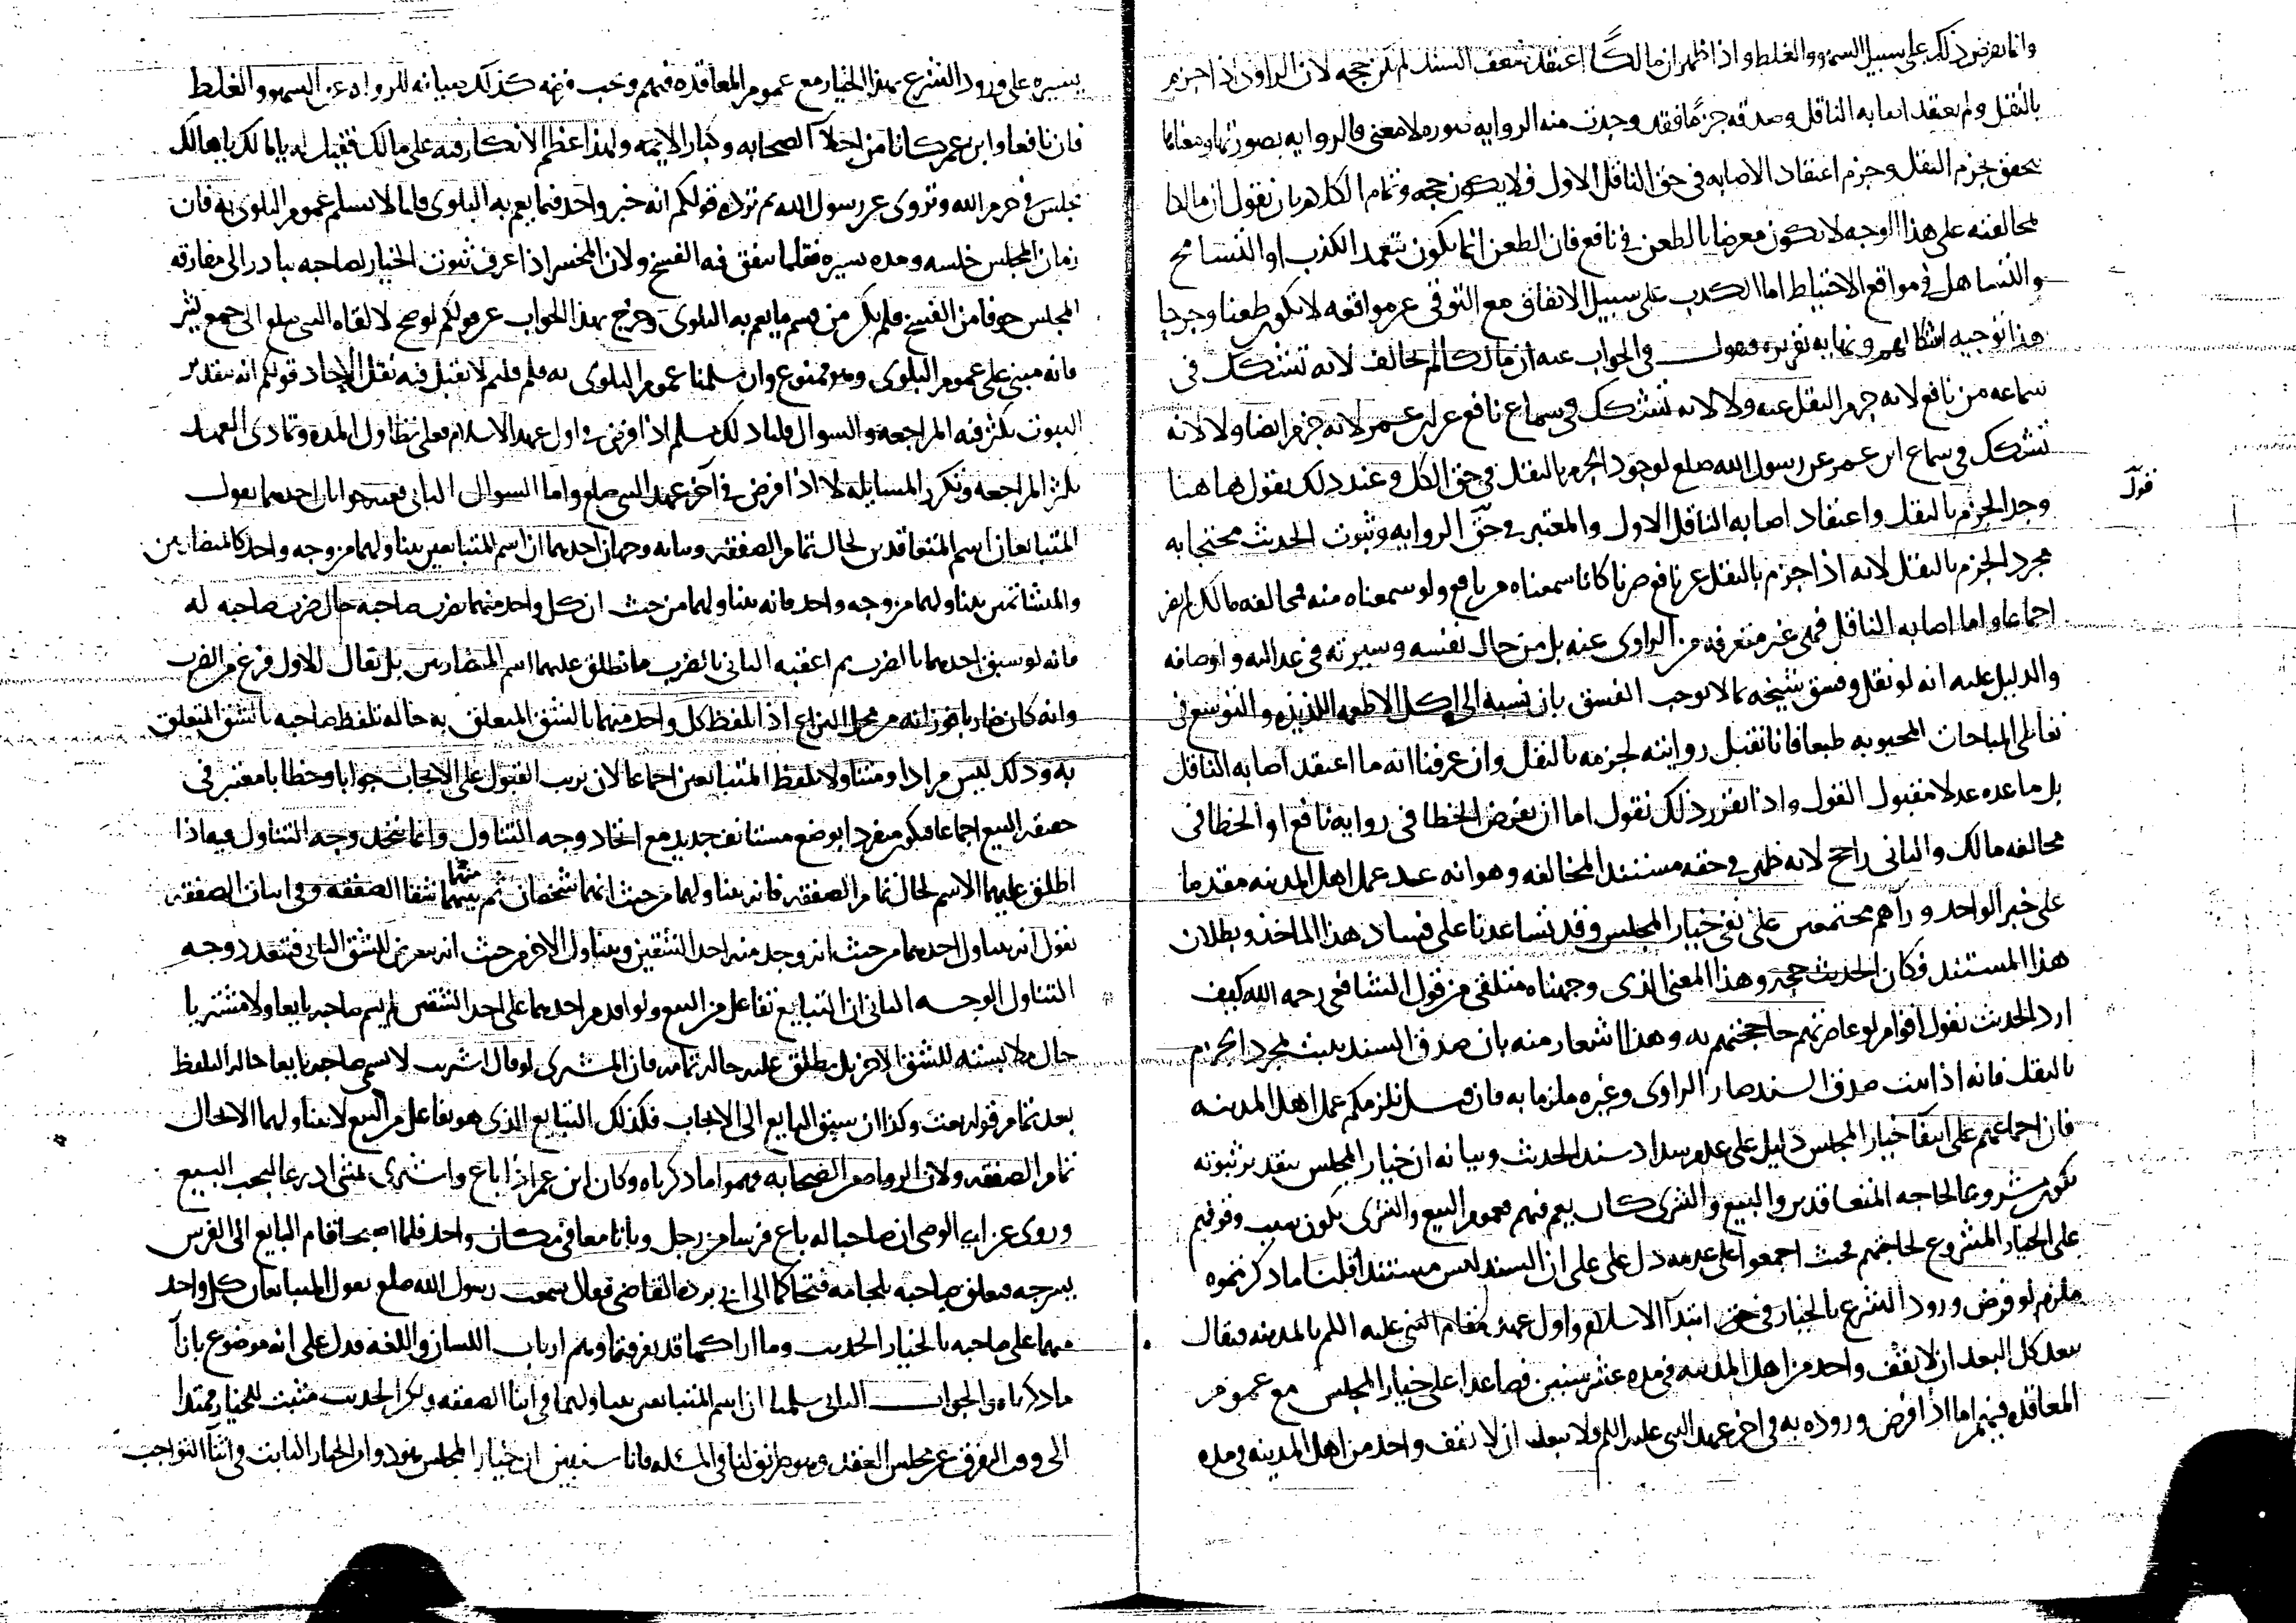 وانما يفرض ذلك على سبيل السهو والغلط واذا ظهر ان مالكا اعتقد ضعف السند لم يكن حجه لان الراوى اذا جزم
بالنقل ولم يعتقد اصابه الناقل وصدقه جزما فقد وجدت منه الروايه صوره لا معنى فالروايه بصورتها ومعناها
تتحقق بجزم النقل وجزم اعتقاد الاصابه في حق الناقل الاول فلا يكون حجه وتمام الكلام بان نقول ان مالكا
بمخالفته على هذا الوجه لا يكون معرضا بالطعن في نافع فان الطعن انما يكون بتعمد الكذب او التسامح
والتساهل في مواقع الاحتياط اما الكذب على سبيل الاتفاق مع التوقى عن مواقعه لا يكون طعنا وجرحا
هذا توجيه اشكالهم ونهايه تقريره ونقول في الجواب عنه ان مالكا لم يخالف لانه تشكك في
سماعه من نافع لانه جزم النقل عنه ولا لانه تشكك في سماع نافع عن ابن عمر لانه جزم ايضا ولا لانه
تشكك في سماع ابن عمر عن رسول الله صلع لوجود الجزم بالنقل في حق الكل وعند ذلك نقول هاهنا
قول
وجد الجزم بالنقل واعتقاد اصابه الناقل الاول والمعتبر في حق الروايه وثبوت الحديث محتجا به
مجرد الجزم بالنقل لانه اذا جزم بالنقل عن نافع صرنا كانا سمعناه من نافع ولو سمعناه منه فمخالفه مالك لم تضر
اجماعا واما اصابه الناقل فهى غير متعرفه من الراوى عنه بل من حال نفسه وسيرته في عدالته واوصافه
والدليل عليه انه لو نقل وفسق شيخه بما لا يوجب الفسق بان نسبه الى اكل الاطعمه اللذيذه والتوسع في
تعاطى المباحات المحبوبه طبعا فانا نقبل روايته لجزمه بالنقل وان عرفنا انه ما اعتقد اصابه الناقل
بل ما عده عدلا مقبول القول واذا تقرر ذلك نقول اما ان يفرض الخطا في روايه نافع او الخطا في
مخالفه مالك والثانى راجح لانه ظهر في حقه مستند المخالفه وهو انه عد عمل اهل المدينه مقدما
على خبر الواحد ورآهم مجتمعين على نفى خيار المجلس وقد تساعدنا على فساد هذا الماخذ وبطلان
هذا المستند فكان الحديث حجه وهذا المعنى الذى وجهناه متلقى من قول الشافعى رحمه الله كيف
ارد الحديث بقول اقوام لو عاصرتهم حاججتهم به وهذا اشعار منه بان صدق السند يثبت بمجرد الجزم
بالنقل فانه اذا ثبت صدق السند صار الراوى وغيره ملزما به فان قيل نلزمكم عمل اهل المدينه
فان اجماعهم على انتفآ خيار المجلس دليل على عدم سداد سند الحديث وبيانه ان خيار المجلس بتقدير ثبوته
يكون مشروعا لحاجه المتعاقدين والبيع والشرى كان يعم فيهم فعموم البيع والشرى يكون سبب وقوفهم
على الخيار المشروع لحاجتهم فحيث اجمعوا على عدمه دل على ان السند ليس مستندا قلنا ما ذكرتموه
ملزم لو فرض ورود الشرع بالخيار في حق ابتدآ الاسلام واول عهد مقام النبى عليه السلم بالمدينه فيقال
يبعد كل البعد ان لا يقف واحد من اهل المدينه في مده عشر سنين فصاعدا على خيار المجلس مع عموم
المعاقده فيهم اما اذا فرض وروده به في اخر عهد النبى عليه السلم ولا يبعد ان لا يقف واحد من اهل المدينه في مده
يسيره على ورود الشرع بهذا الخيار مع عموم المعاقده فيهم ويجب فرضه كذلك صيانه للرواه عن السهو والغلط
فان نافعا وابن عمر كانا من اجلآ الصحابه وكبار الايمه ولهذا عظم الانكار فيه على مالك فقيل له يا مالك يا هالك
تجلس في حرم الله وتروى عن رسول الله ثم ترده قولكم انه خبر واحد فيما يعم به البلوى قلنا لا نسلم عموم البلوى به فان
زمان المجلس خلسه ومده يسيره فقلما يتفق فيه الفسخ ولان المخير اذا عرف ثبوت الخيار لصاحبه يبادر الى مفارقه
المجلس خوفا من الفسخ فلم يكن من قسم ما يعم به البلوى وخرج بهذا الجواب عن قولكم لو صح لالقاه النبى صلع الى جمع كثير
فانه مبنى على عموم البلوى وهو ممنوع وان سلمنا عموم البلوى به فلم قلتم لا يقبل فيه نقل الآحاد قولكم انه بتقدير
الثبوت تكثر فيه المراجعه والسوال قلنا ذلك مسلم اذا فرض في اول عهد الاسلام فعلى تطاول المده وتمادى العهد
تكثر المراجعه وتكرر المسايله لا اذا فرض في آخر عهد النبى صلع واما السوال الثانى فعنه جوابان احدهما نقول
المتبايعان اسم المتعاقدين لحال تمام الصفقه وبيانه وجهان احدهما ان اسم المتبايعين يتناولهما من وجه واحد كالمتضاربين
والمتشاتمين يتناولهما من وجه واحد فانه يتناولهما من حيث ان كل واحد منهما يضرب صاحبه حال ضرب صاحبه له
فانه لو سبق احدهما بالضرب ثم اعقبه الثانى بالضرب ما يطلق عليهما اسم المتضاربين بل يقال للاول فرغ من الضرب
وانه كان ضاربا فوزانه من محل النزاع اذا تلفظ كل واحد منهما بالشق المتعلق به حاله تلفظ صاحبه بالشق المتعلق
به وذلك ليس مرادا ومتناولا بلفظ المتبايعين اجماعا لان ترتب القبول على الايجاب جوابا وخطابا معتبر في
حقيقه البيع اجماعا فيكون منفردا بوضع مستانف جديد مع اتحاد وجه التناول وانما يتحد وجه التناول فيه اذا
اطلق عليهما الاسم لحال تمام الصفقه فانه يتناولهما من حيث انهما شخصان تم بينهما شقا الصفقه وفى اثبات الصفقه
منهما
نقول انه يتناول احدهما من حيث انه وجد منه احد الشقين ويتناول الاخر من حيث انه يعرض للشق الثانى فيتعدد وجه
التناول الوجه الثانى ان التبايع تفاعل من البيع ولو اقدم احدهما على احد الشقين لم يسم صاحبه بايعا ولا مشتريا
حال ملابسته للشق الاخر بل يطلق عليه حاله تمامه فان المشترى لو قال اشتريت لا يسمى صاحبه بايعا حاله التلفظ
بعد تمام قوله بعت وكذا ان سبق البايع الى الايجاب فكذلك التبايع الذى هو تفاعل من البيع لا يتناولهما الا لحال
تمام الصفقه ولان الرواه من الصحابه فهموا ما ذكرناه وكان ابن عمر اذا باع واشترى مشى اذرعا ليجب البيع
وروى عن ابى الوضى ان صاحبا له باع فرسا من رجل وباتا معا في مكان واحد فلما اصبحا قام البايع الى الفرس
يسرجه فتعلق صاحبه بلجامه فتحاكما الى ابى برزه القاضى فقال سمعت رسول الله صلع يقول المتبايعان كل واحد
منهما على صاحبه بالخيار الحديث وما اراكما قد تفرقتما وهم ارباب اللسان واللغه فدل على انه موضوع بازآ
ما ذكرناه الجواب الثانى سلمنا ان اسم المتبايعين يتناولهما في اثنا الصفقه ولكن الحديث مثبت للخيار ممتدا
الى وقت التفرق عن مجلس العقد وهو طريق لنا في المسئله فانا سنبين ان خيار المجلس وان الخيار الثابت في اثنآ التواجب